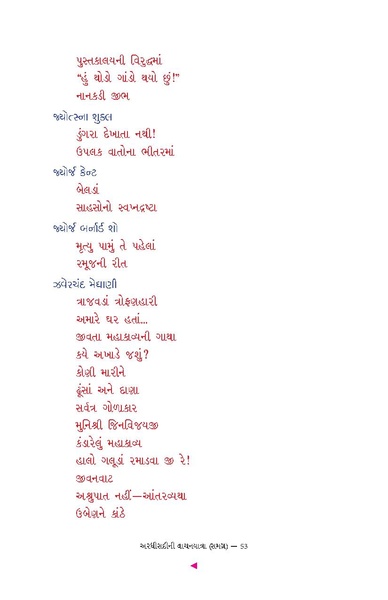 પુસ્તકાલયની વિરુદ્ધમાં
“હું થોડો ગાંડો થયો છું!”
નાનકડી જીભ
જ્યોત્સ્ના શુક્લ
ડુંગરા દેખાતા નથી!
ઉપલક વાતોના ભીતરમાં
જ્યોર્જ કેન્ટ
બેલડાં
સાહસોનો સ્વપ્નદ્રષ્ટા
જ્યોર્જ બર્નાર્ડ શો
મૃત્યુ પામું તે પહેલાં
રમૂજની રીત
ઝવેરચંદ મેઘાણી
ત્રાજવડાં ત્રોફણહારી
અમારે ઘર હતાં...
જીવતા મહાકાવ્યની ગાથા
કયે અખાડે જશું?
કોણી મારીને
ઢૂંસાં અને દાણા
સર્વત્ર ગોળાકાર
મુનિશ્રી જિનવિજયજી
કંડારેલું મહાકાવ્ય
હાલો ગલૂડાં રમાડવા જી રે!
જીવનવાટ
અશ્રુપાત નહીં—આંતરવ્યથા
ઉબેણને કાંઠે
અરધીસદીની વાચનયાત્રા (સમગ્ર) — 53